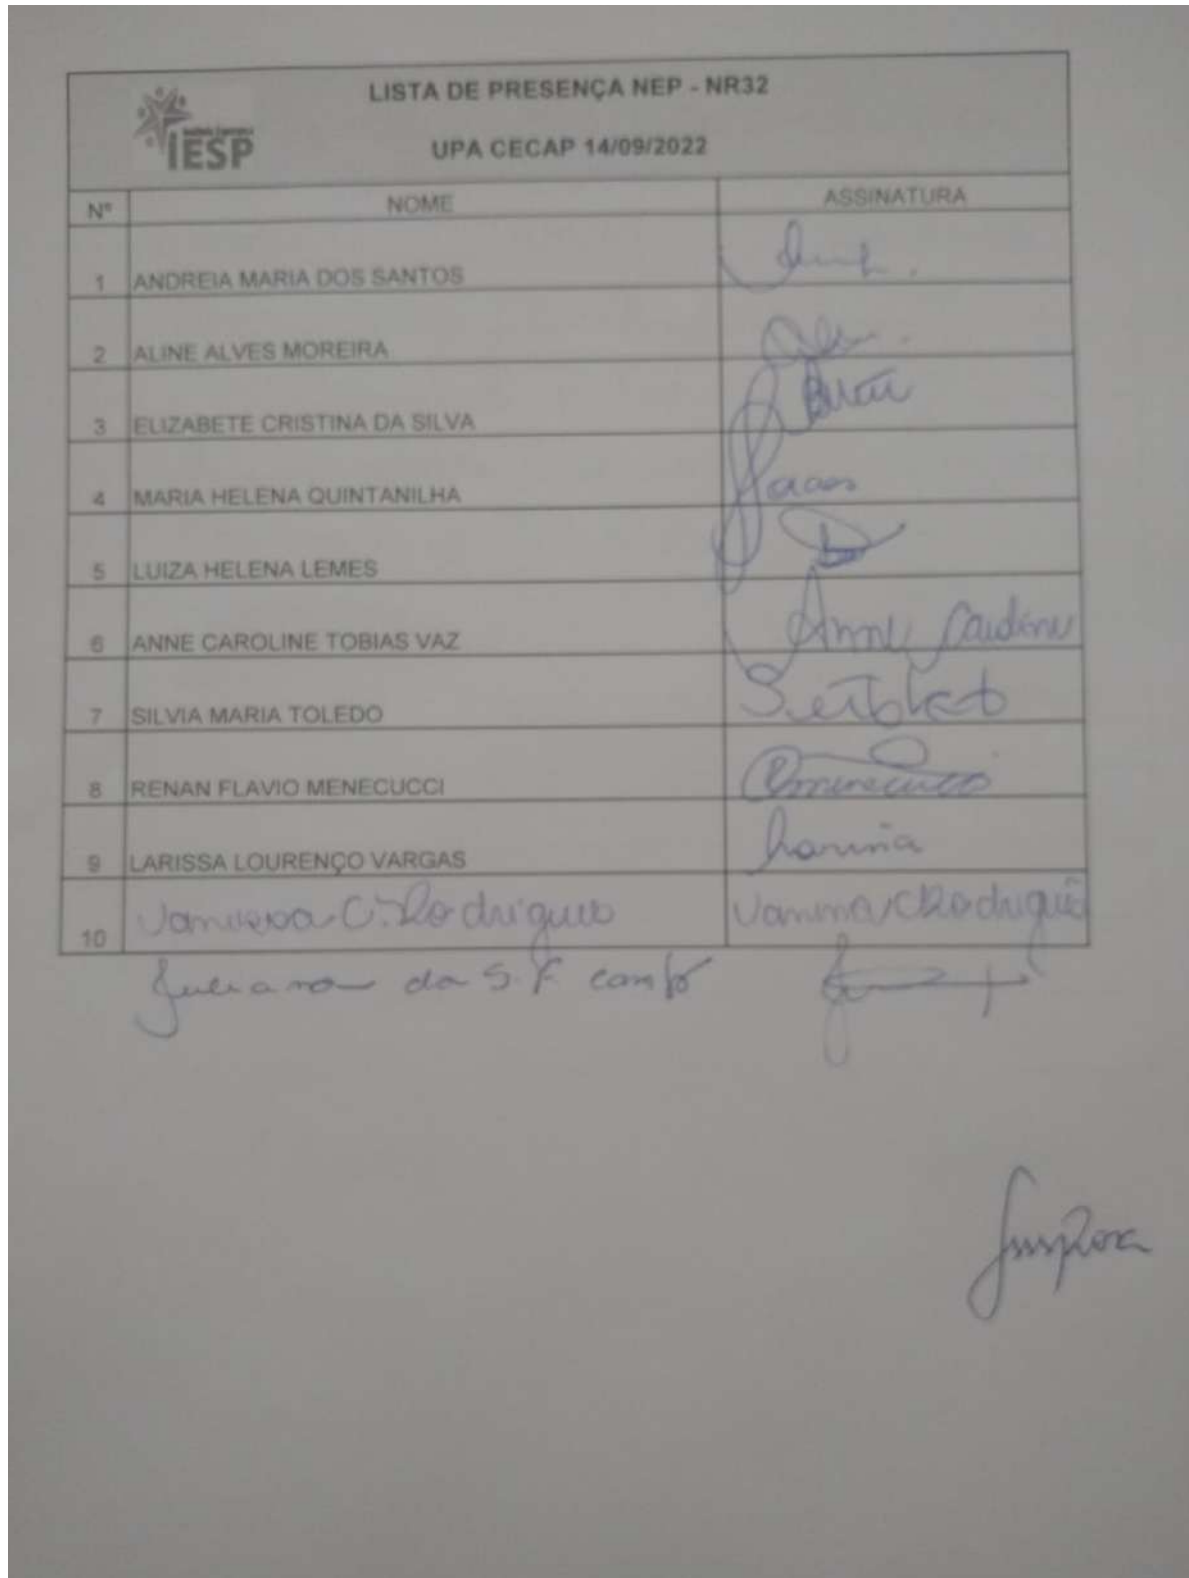 LISTA DE PRESENÇA NEP - NR32
IESP
UPA CECAP 14/09/2022
Nº NOME ASSINATURA
1 ANDREIA MARIA DOS SANTOS
2 ALINE ALVES MOREIRA
3 ELIZABETE CRISTINA DA SILVA
4 MARIA HELENA QUINTANILHA
5 LUIZA HELENA LEMES
6 ANNE CAROLINE TOBIAS VAZ Anne Caroline
7 SILVIA MARIA TOLEDO
8 RENAN FLAVIO MENECUCCI
9 LARISSA LOURENÇO VARGAS Larissa
10 Vanessa C. Rodrigues Vanessa C Rodrigues
da S. F.